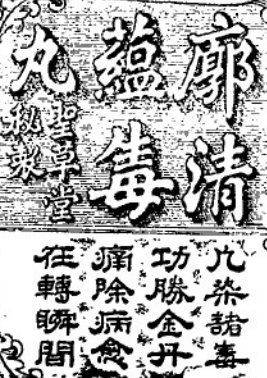 廓清
蘊毒
丸
聖草堂
秘
凡染諸毒
功勝金丹
痛除病愈
在轉瞬間